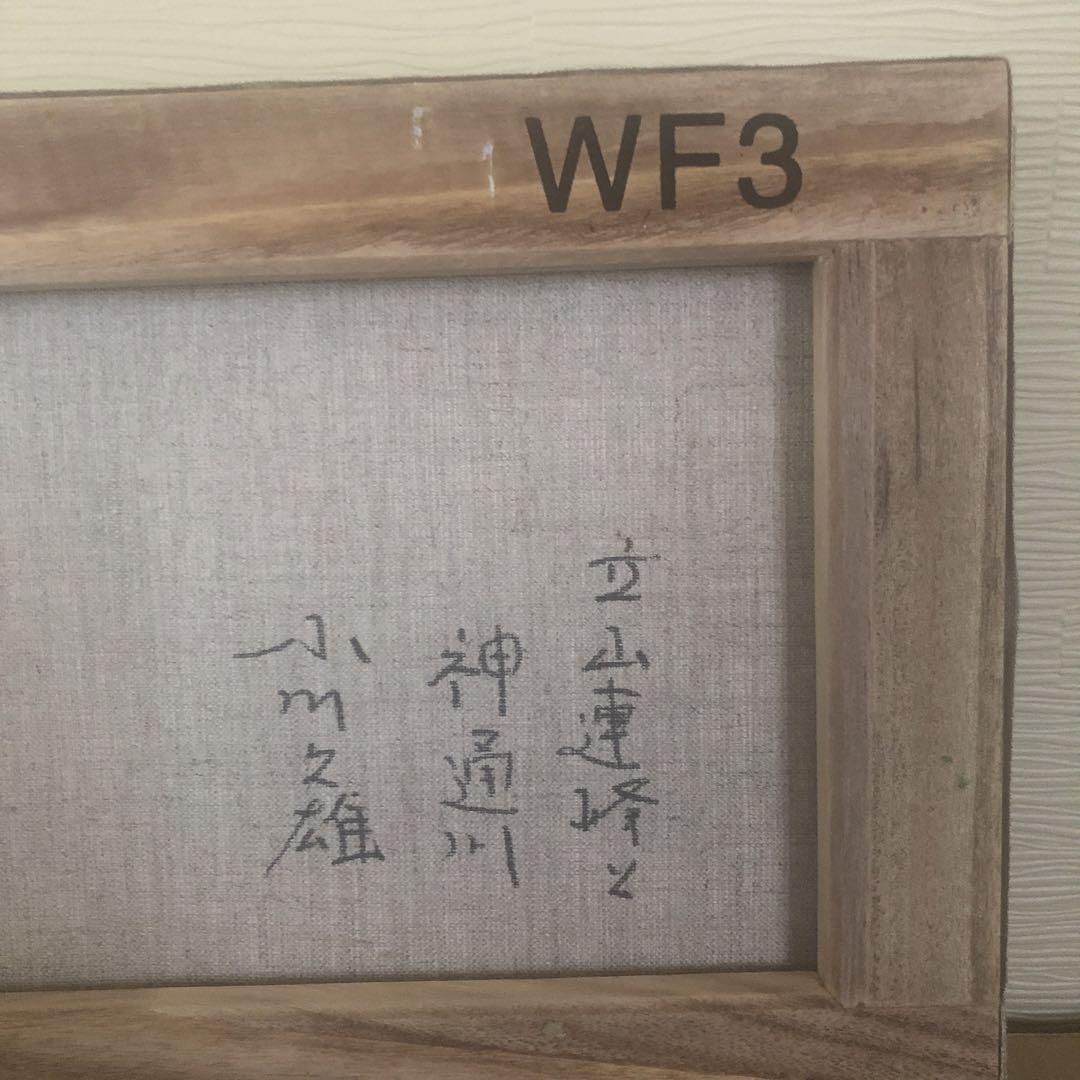 WF3
立山連峰と
神通川
小川久雄